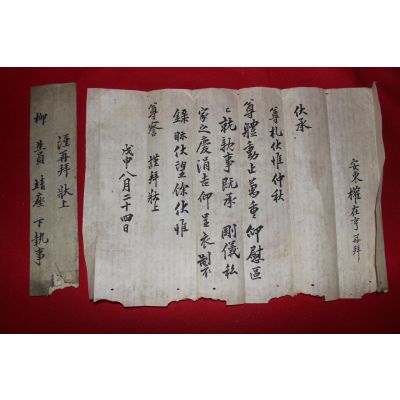 安東權在亨再拜
伏承
尊札伏惟仲秋
尊體動止萬重仰慰區
〻就親事旣承剛儀私
家之慶涓吉仰呈衣製
錄眎伏望餘伏惟
尊察謹拜狀上
戊申八月二十四日
謹再拜狀上
柳生員 靖座下執事